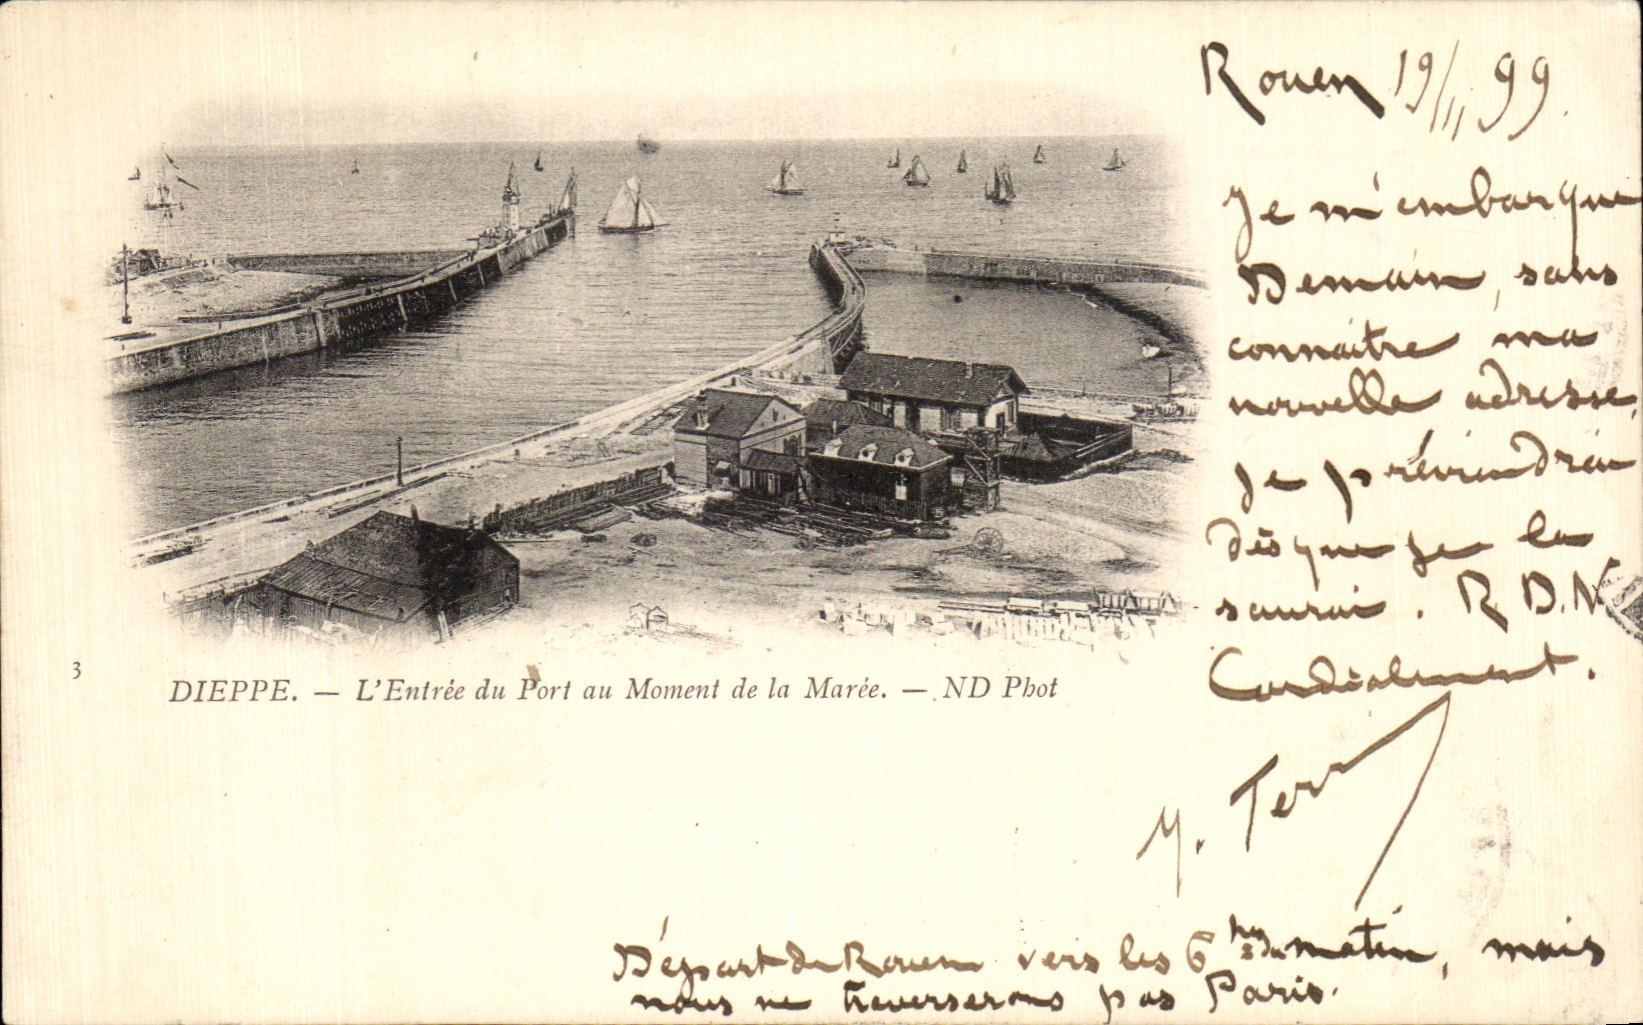 Rouen 19/II 99.
Je m'embarque
Demain, sans
connaitre ma
nouvelle adresse,
Je préviendrai
dès que je la
saurai. R D.N
Cordialement.
3
DIEPPE. — L'Entrée du Port au Moment de la Marée. — ND Phot
Départ de Rouen vers les 6 hrs du matin, mais
nous ne traverserons pas Paris.